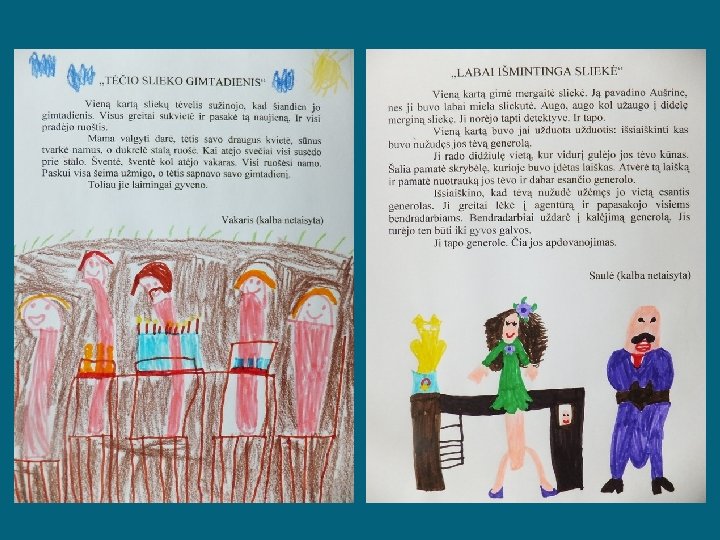 „TĖČIO SLIEKO GIMTADIENIS“
Vieną kartą sliekų tėvelis sužinojo, kad šiandien jo
gimtadienis. Visus greitai sukvietė ir pasakė tą naujieną. Ir visi
pradėjo ruoštis.
Mama valgyti darė, tėtis savo draugus kvietė, sūnus
tvarkė namus, o dukrelė stalą ruošė. Kai atėjo svečiai visi susėdo
prie stalo. Šventė, šventė kol atėjo vakaras. Visi ruošėsi namo.
Paskui visa šeima užmigo, o tėtis sapnavo savo gimtadienį.
Toliau jie laimingai gyveno.
Vakaris (kalba netaisyta)
„LABAI IŠMINTINGA SLIEKĖ“
Vieną kartą gimė mergaitė sliekė. Ją pavadino Aušrine,
nes ji buvo labai miela sliekutė. Augo, augo kol užaugo į didelę
merginą sliekę. Ji norėjo tapti detektyve. Ir tapo.
Vieną kartą buvo jai užduota užduotis: išsiaiškinti kas
buvo nužudęs jos tėvą generolą.
Ji rado didžiulę vietą, kur vidurį gulėjo jos tėvo kūnas.
Šalia pamatė skrybėlę, kurioje buvo įdėtas laiškas. Atvėrė tą laišką
ir pamatė nuotrauką jos tėvo ir dabar esančio generolo.
Išsiaiškino, kad tėvą nužudė užėmęs jo vietą esantis
generolas. Ji greitai lėkė į agentūrą ir papasakojo visiems
bendradarbiams. Bendradarbiai uždarė į kalėjimą generolą. Jis
turėjo ten būti iki gyvos galvos.
Ji tapo generole. Čia jos apdovanojimas.
Saulė (kalba netaisyta)